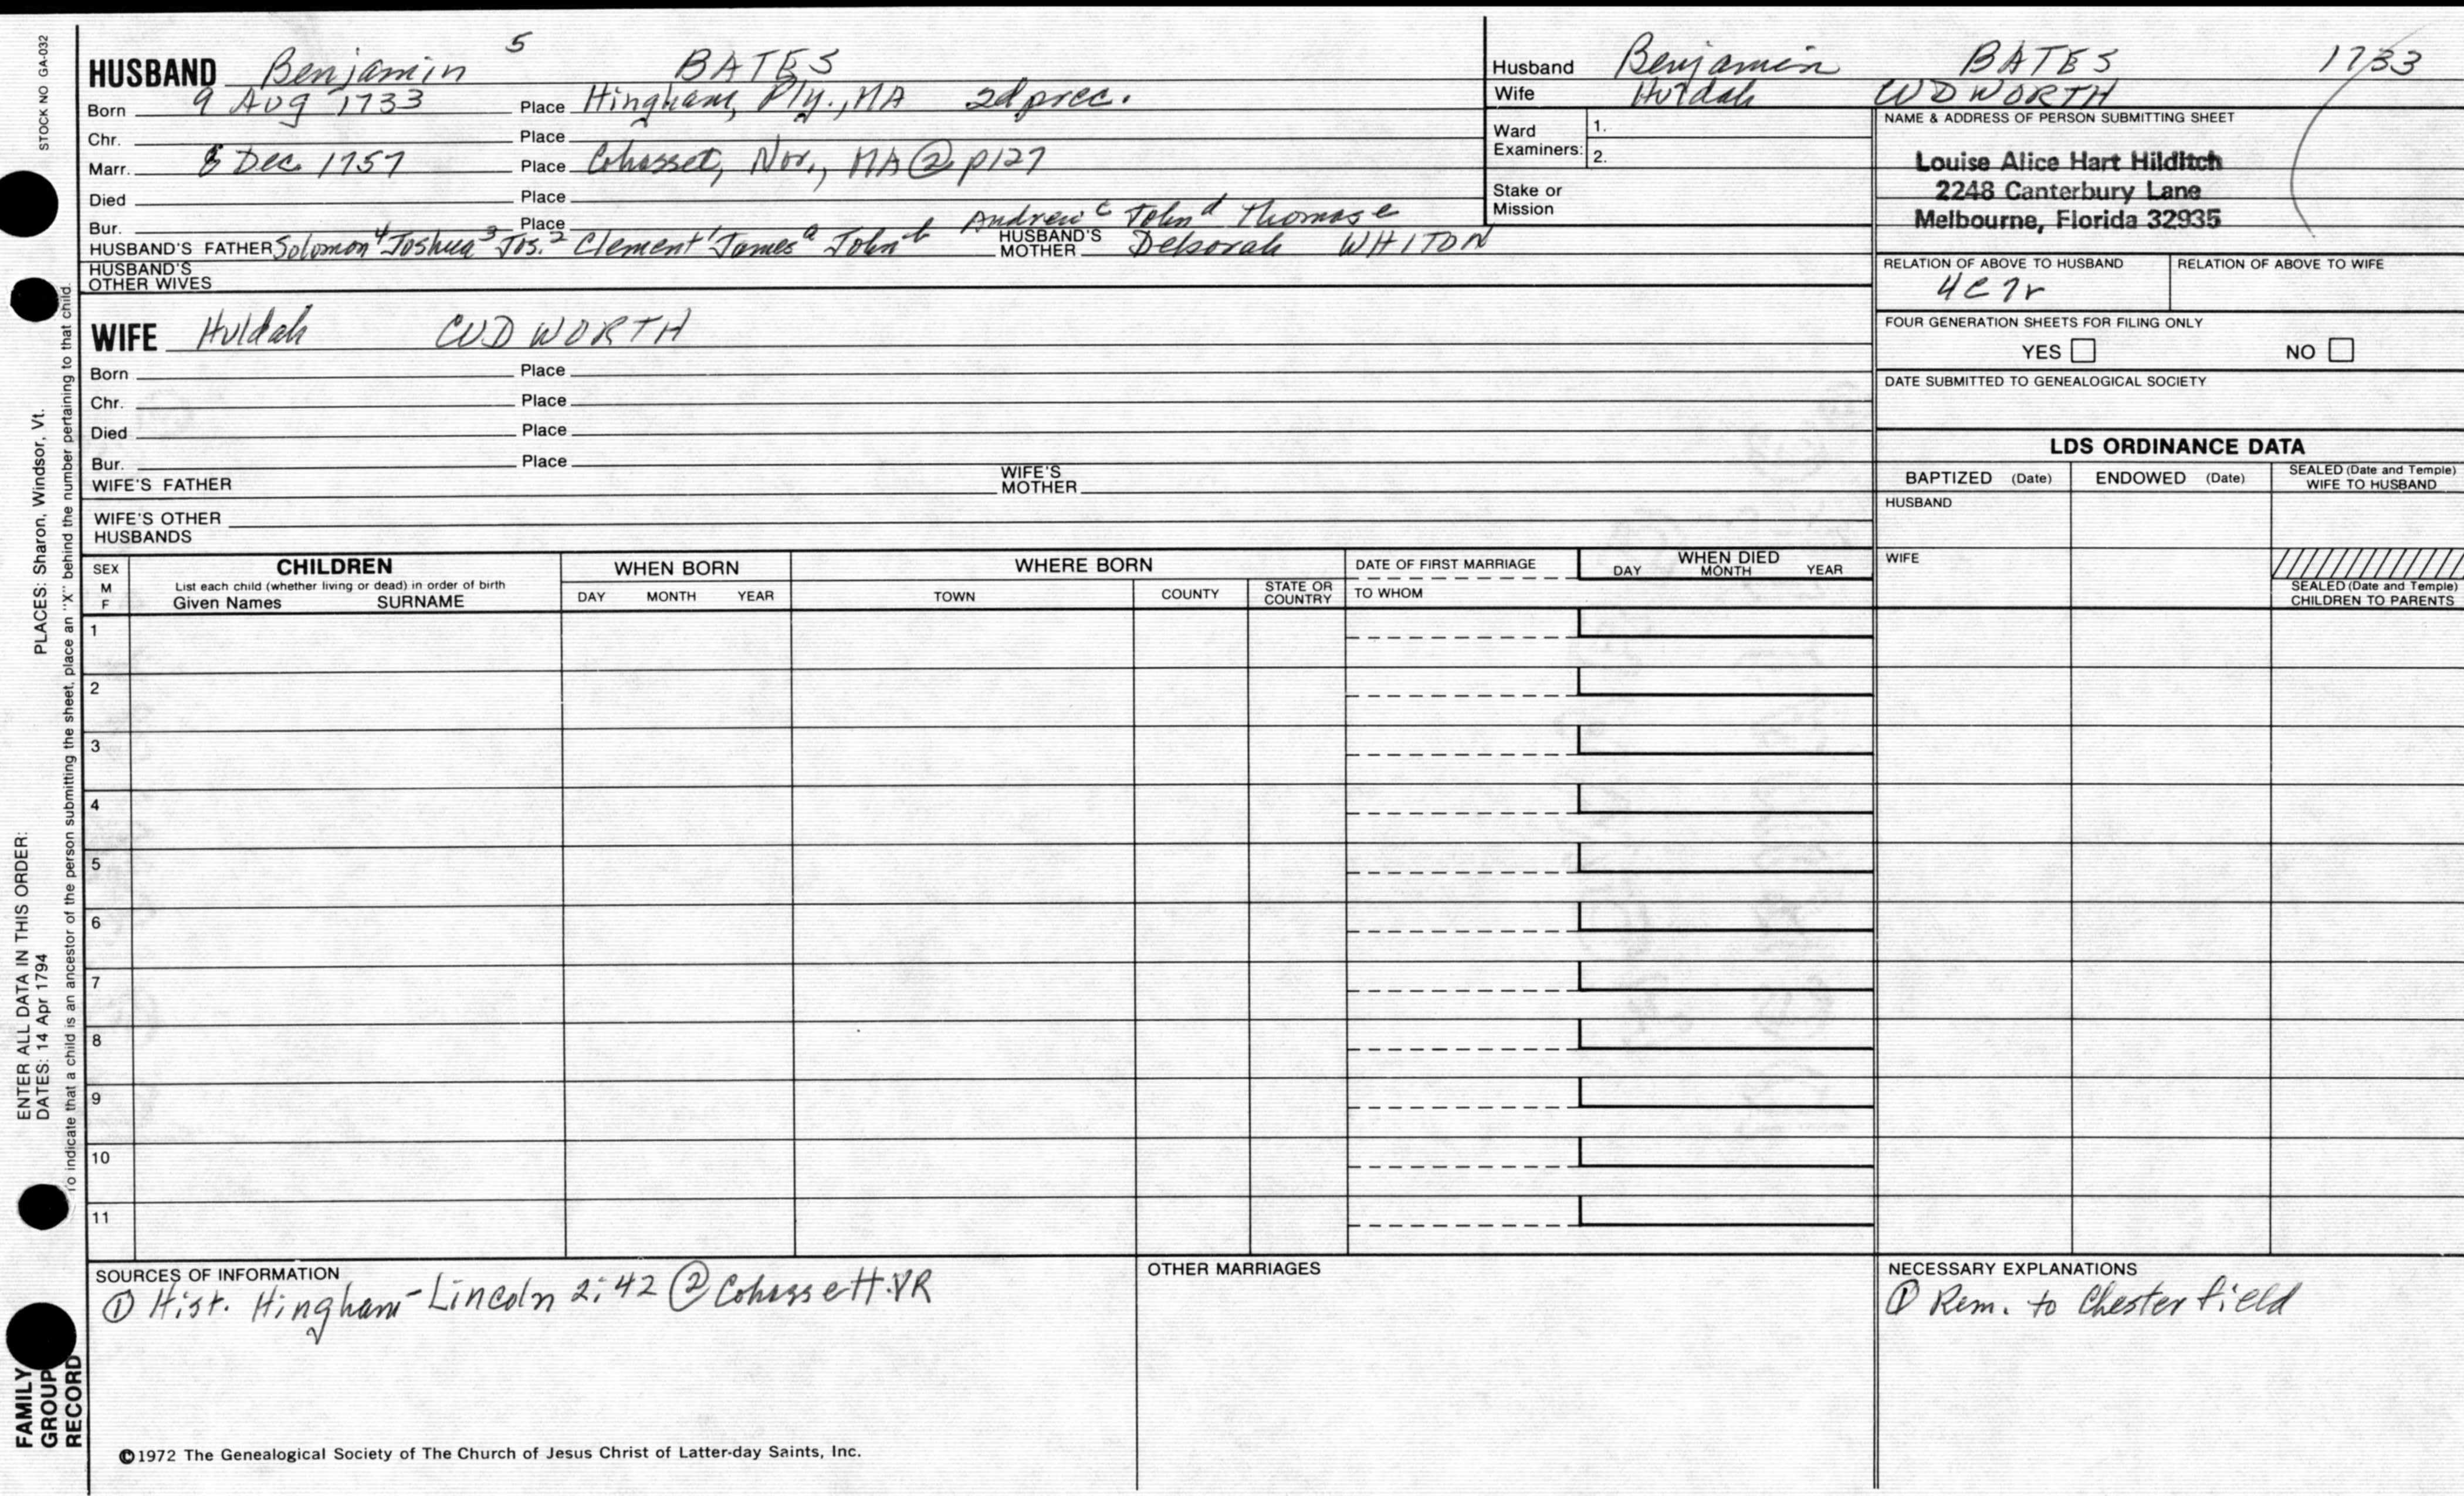 STOCK NO GA-032
HUSBAND Benjamin 5 BATES
Born 9 Aug 1733 Place Hingham, Ply., MA 2d prec.
Chr. Place
Marr. 8 Dec 1757 Place Cohasset, Nor., MA ② p127
Died Place
Bur. Place Andrew c John d Thomas e
HUSBAND'S FATHER Solomon 4 Joshua 3 Jos. 2 Clement 1 James a John b HUSBAND'S MOTHER Deborah WHITON
HUSBAND'S OTHER WIVES
WIFE Huldah CUDWORTH
Born Place
Chr. Place
Died Place
Bur. Place
WIFE'S FATHER WIFE'S MOTHER
WIFE'S OTHER HUSBANDS
Husband Benjamin BATES 1733
Wife Huldah CUDWORTH
Ward Examiners: 1.
2.
Stake or Mission
NAME & ADDRESS OF PERSON SUBMITTING SHEET
Louise Alice Hart Hilditch
2248 Canterbury Lane
Melbourne, Florida 32935
RELATION OF ABOVE TO HUSBAND RELATION OF ABOVE TO WIFE
4C7r
FOUR GENERATION SHEETS FOR FILING ONLY
YES NO
DATE SUBMITTED TO GENEALOGICAL SOCIETY
LDS ORDINANCE DATA
BAPTIZED (Date) ENDOWED (Date) SEALED (Date and Temple) WIFE TO HUSBAND
HUSBAND
WIFE
SEALED (Date and Temple) CHILDREN TO PARENTS
SEX M F
CHILDREN
List each child (whether living or dead) in order of birth
Given Names SURNAME
WHEN BORN
DAY MONTH YEAR
WHERE BORN
TOWN COUNTY STATE OR COUNTRY
DATE OF FIRST MARRIAGE
TO WHOM
WHEN DIED
DAY MONTH YEAR
1
2
3
4
5
6
7
8
9
10
11
SOURCES OF INFORMATION
① Hist. Hingham - Lincoln 2:42 ② Cohassett VR
OTHER MARRIAGES
NECESSARY EXPLANATIONS
① Rem. to Chesterfield
©1972 The Genealogical Society of The Church of Jesus Christ of Latter-day Saints, Inc.
FAMILY GROUP RECORD
ENTER ALL DATA IN THIS ORDER:
DATES: 14 Apr 1794 PLACES: Sharon, Windsor, Vt.
To indicate that a child is an ancestor of the person submitting the sheet, place an "X" behind the number pertaining to that child.